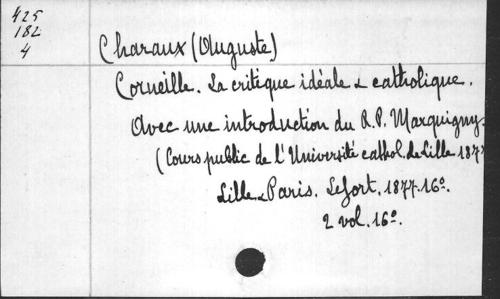 425
182
4
Charaux (Auguste)
Corneille. La critique idéale & catholique.
Avec une introduction du R.P. Marquigny.
(Cours public de l'Université cathol. de Lille 187
Lille & Paris. Lefort. 1877. 16º.
2 vol. 16º.